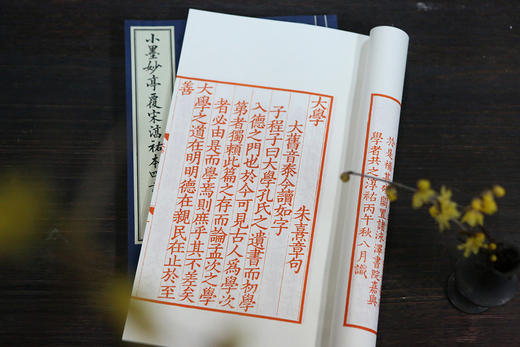 於是補其
置諸泳澤書院嘉與
學者共之淳祐丙午秋八月識
大學 朱熹章句
大舊音泰今讀如字
子程子曰大學孔氏之遺書而初學
入德之門也於今可見古人為學次
第者獨賴此篇之存而論孟次之學
者必由是而學焉則庶乎其不差矣
大學之道在明明德在親民在止於至
善
小墨妙亭覆宋淳祐本四